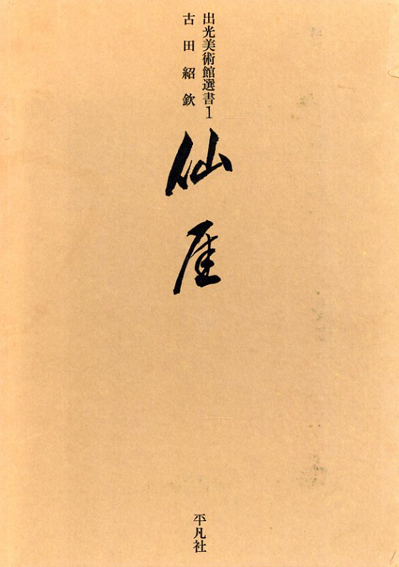 出光美術館選書1
古田紹欽
仙厓
平凡社